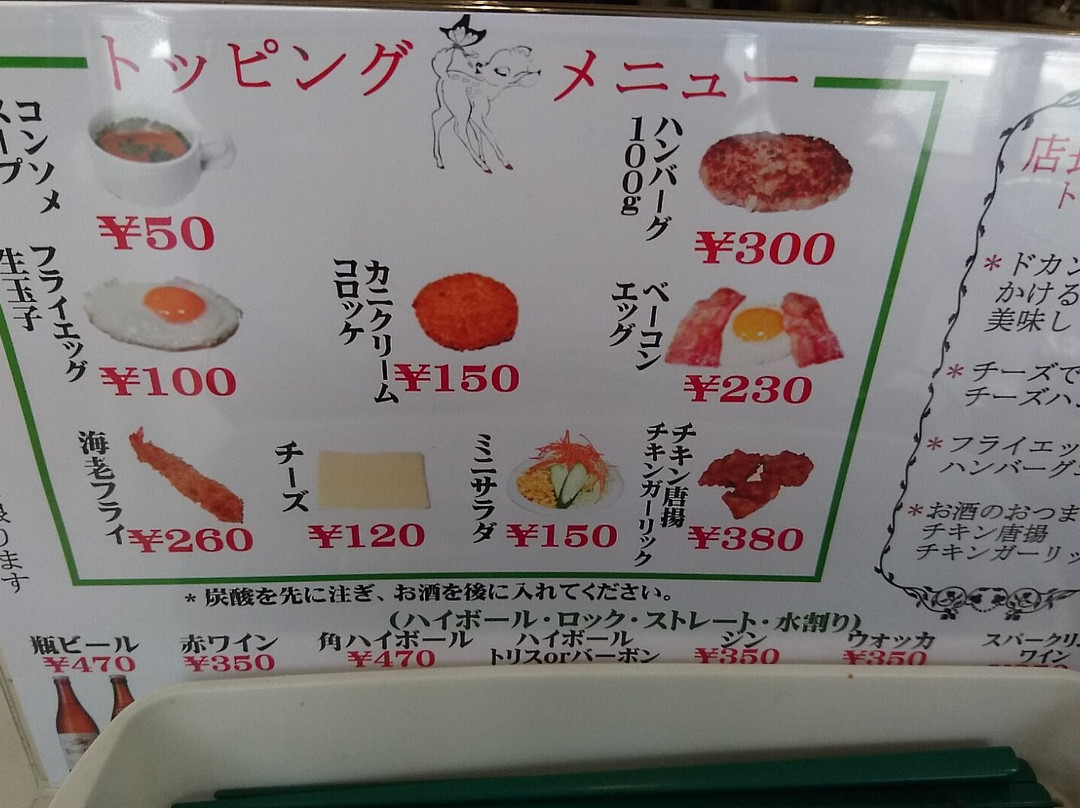 トッピング メニュー
コンソメ
スープ
¥50
ハンバーグ
100g
¥300
フライエッグ
生玉子
¥100
カニクリーム
コロッケ
¥150
ベーコン
エッグ
¥230
海老フライ
¥260
チーズ
¥120
ミニサラダ
¥150
チキン唐揚
チキンガーリック
¥380
*炭酸を先に注ぎ、お酒を後に入れてください。
(ハイボール・ロック・ストレート・水割り)
瓶ビール
¥470
赤ワイン
¥350
角ハイボール
¥470
ハイボール
トリスorバーボン
ジン
¥350
ウォッカ
¥350
スパークリ
ワイン
店長
ト
*ドカン
かける
美味し
*チーズで
チーズハ
*フライエッ
ハンバーグ
*お酒のおつま
チキン唐揚
チキンガーリッ
ります